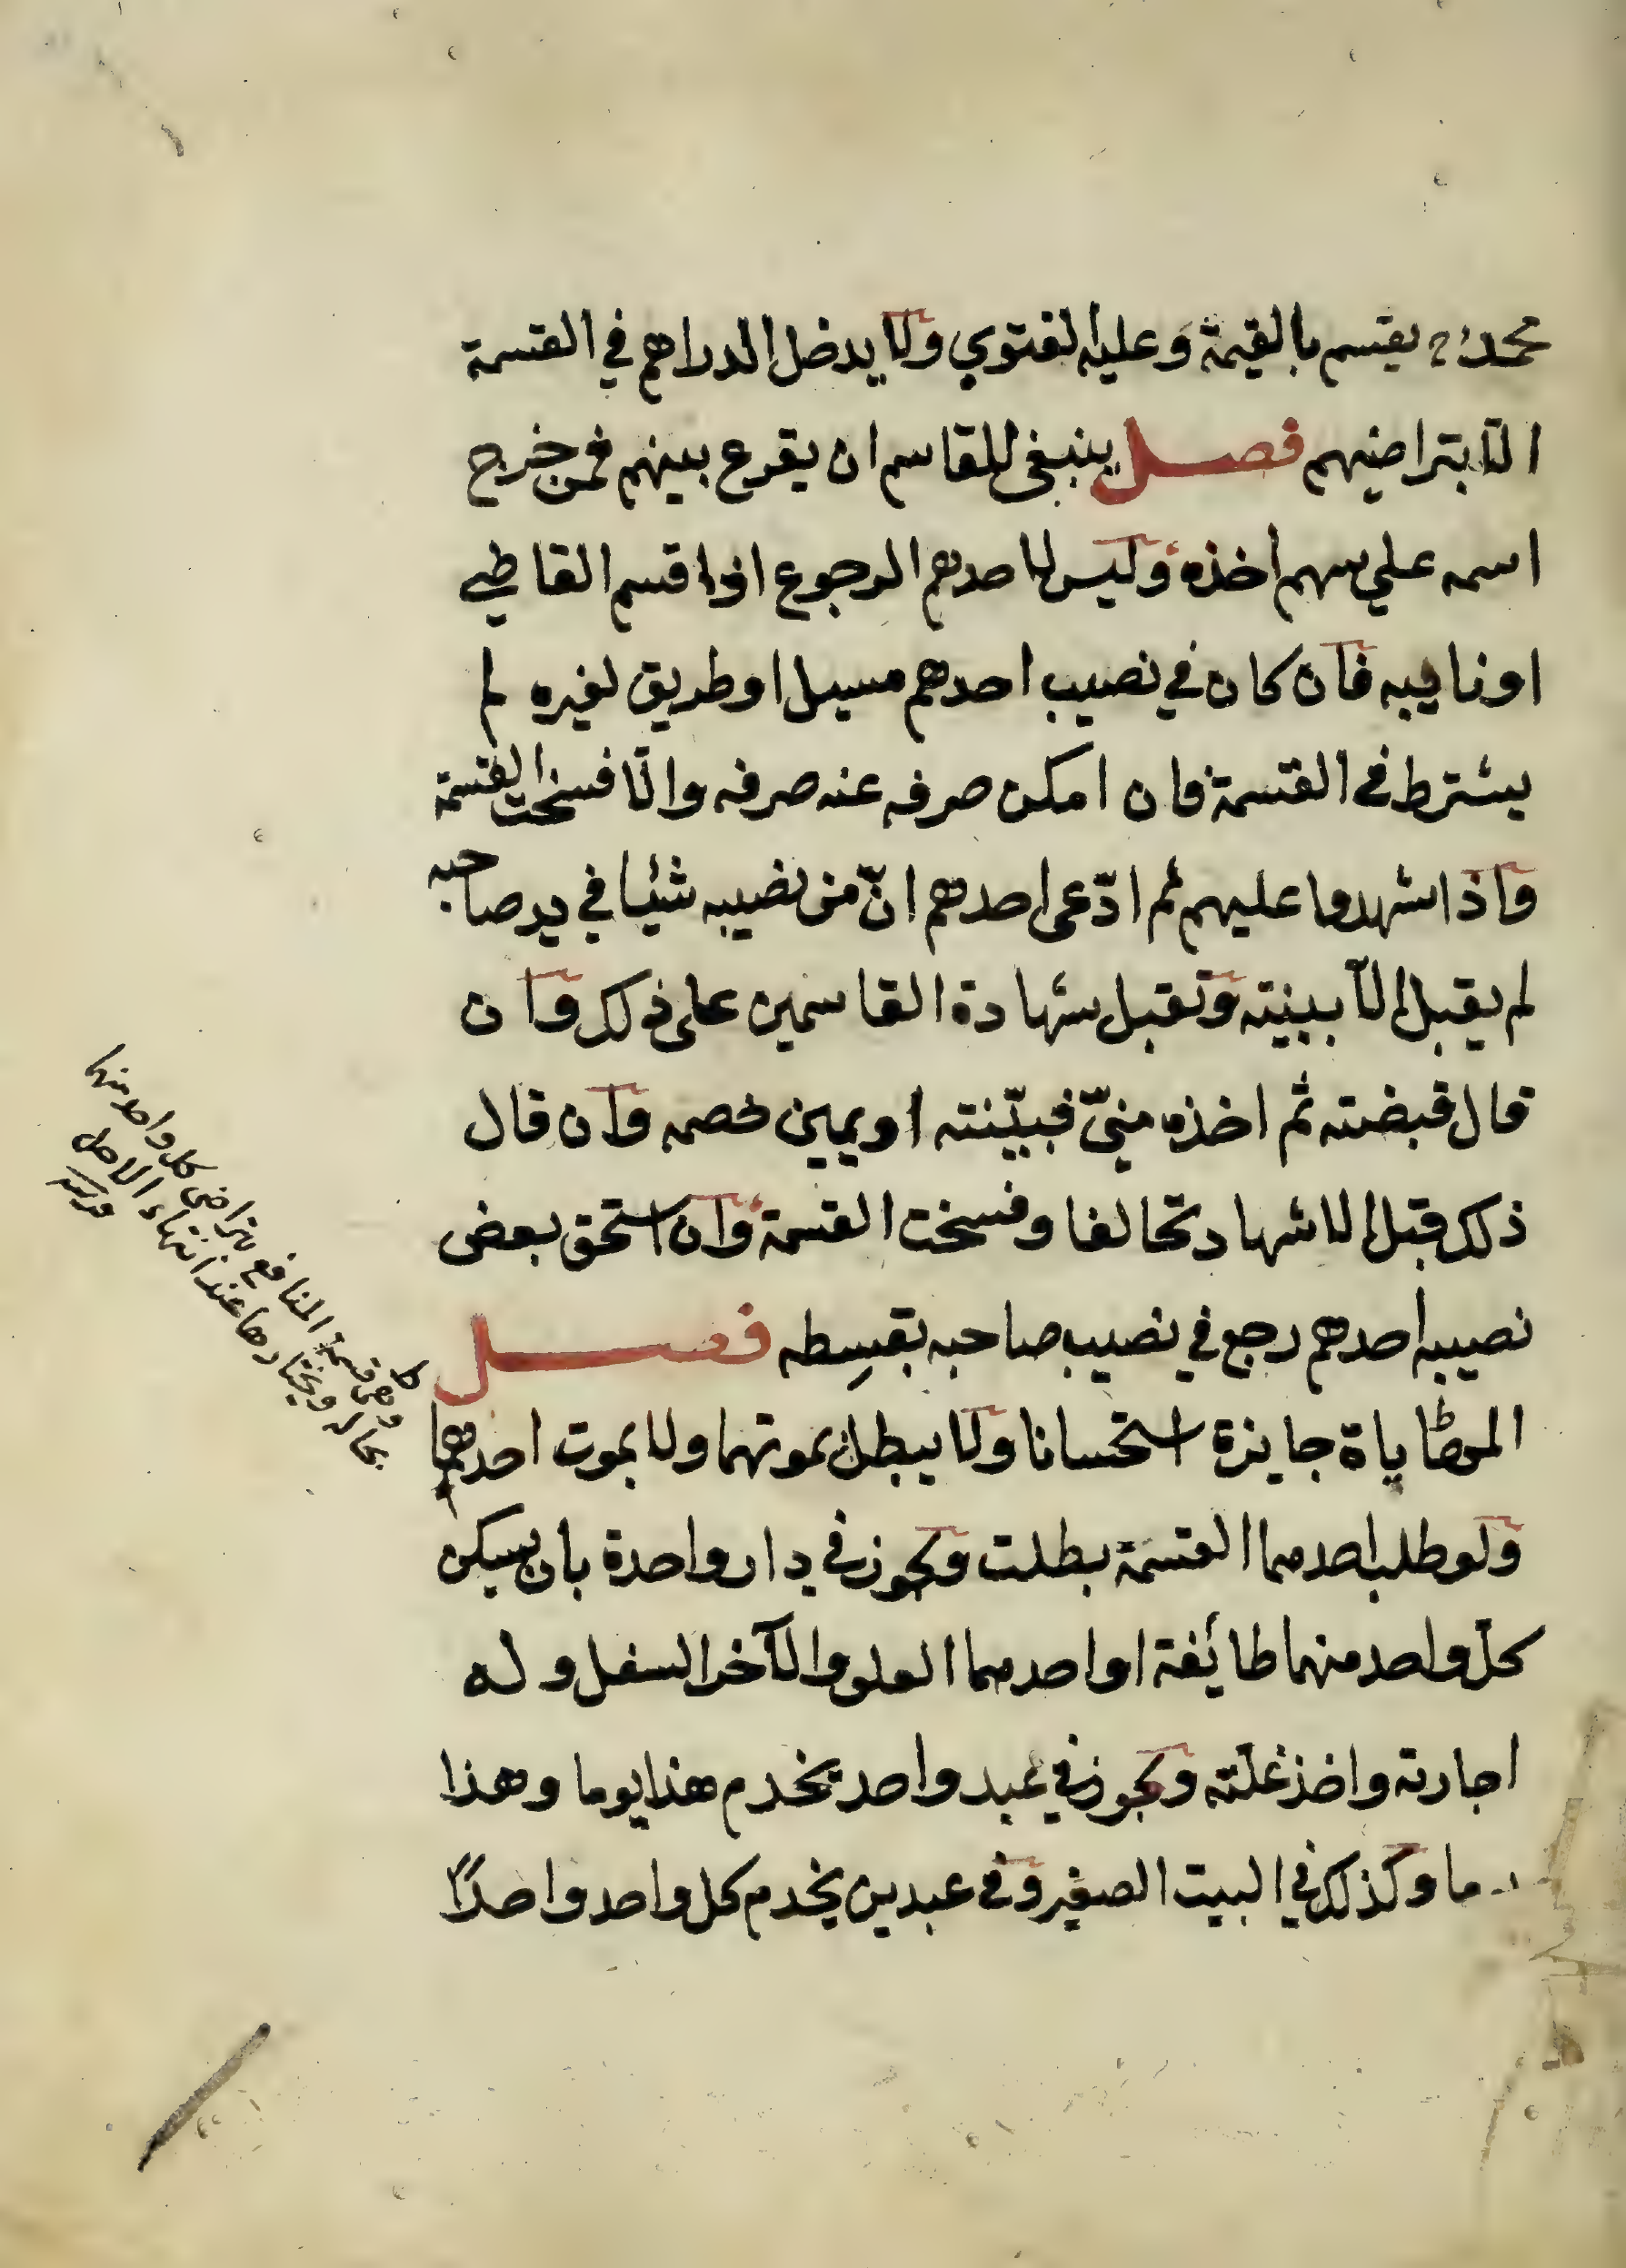 محمد رح يقسم بالقيمة وعليه الفتوي ولا يدخل الدراهم في القسمة
الّا بتراضيهم فصل ينبغي للقاسم ان يقرع بينهم فمن خرج
اسمه علي سهم اخذه وليس لاحدهم الرجوع اذا قسم القاضي
او نايبه فان كان في نصيب احدهم مسيل او طريق لغيره لم
يشترط في القسمة فان امكن صرفه عنه صرفه والّا فسخت القسمة
واذا شهدوا عليهم ثم ادّعى احدهم انّ من نصيبه شئيا في يد صاحبه
لم يقبل الّا ببينته وتقبل شهادة القاسمين على ذلك وان
قال قبضته ثم اخذه منيّ فبيّنته او يمين خصمه وان قال
ذلك قبل الاشهاد تحالفا وفسخت القسمة وان استحق بعض
نصيب احدهم رجع في نصيب صاحبه بقسطه فصل
المهاياة جايزة استحسانا ولا يبطل بموتهما ولا بموت احدهما
ولو طلب احدهما القسمة بطلت ويجوز في دار واحدة بان يسكن
كلّ واحد منهما طائفة او احدهما العلو والآخر السفل وله
اجارته واخذ غلّته ويجوز في عبد واحد يخدم هذا يوما وهذا
يوما وكذلك في البيت الصغير وفي عبدين يخدم كل واحد واحدًا
وهي قسمة المنافع بتراضى كل واحد منهما
بحاله ويختارها عند انتهاء الاصل